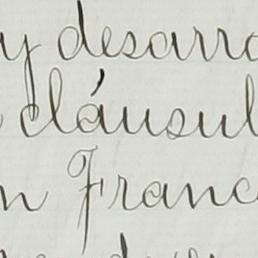 y desarro
cláusul
n Franc